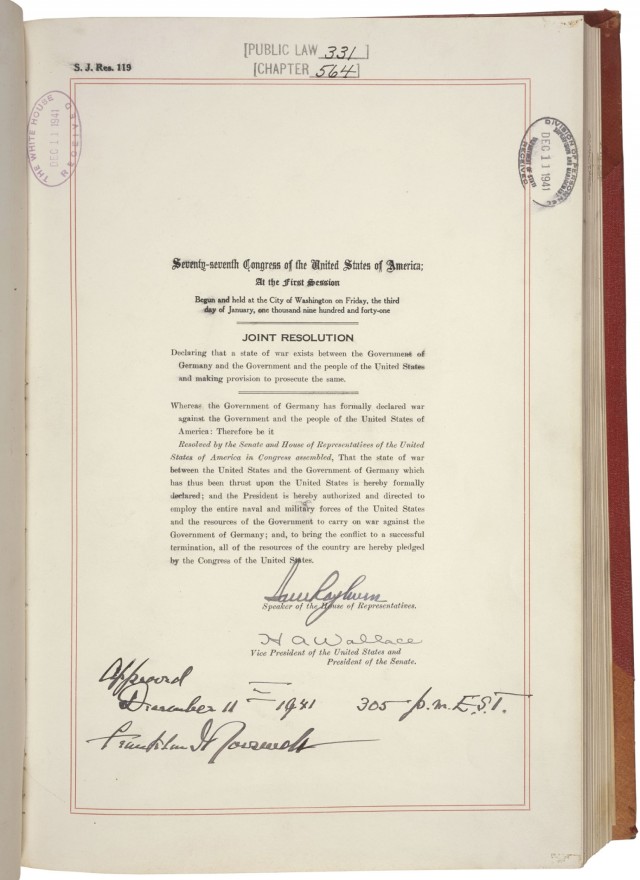 S. J. Res. 119
[PUBLIC LAW 331]
[CHAPTER 564]
THE WHITE HOUSE
DEC 11 1941
RECEIVED
DIVISION OF
DEC 11 1941
RECEIVED
Seventy-seventh Congress of the United States of America;
At the First Session
Begun and held at the City of Washington on Friday, the third
day of January, one thousand nine hundred and forty-one
JOINT RESOLUTION
Declaring that a state of war exists between the Government of
Germany and the Government and the people of the United States
and making provision to prosecute the same.
Whereas the Government of Germany has formally declared war
against the Government and the people of the United States of
America: Therefore be it
Resolved by the Senate and House of Representatives of the United
States of America in Congress assembled, That the state of war
between the United States and the Government of Germany which
has thus been thrust upon the United States is hereby formally
declared; and the President is hereby authorized and directed to
employ the entire naval and military forces of the United States
and the resources of the Government to carry on war against the
Government of Germany; and, to bring the conflict to a successful
termination, all of the resources of the country are hereby pledged
by the Congress of the United States.
Sam Rayburn
Speaker of the House of Representatives.
H A Wallace
Vice President of the United States and
President of the Senate.
Approved
December 11th 1941 305 p.m. E.S.T.
Franklin D Roosevelt